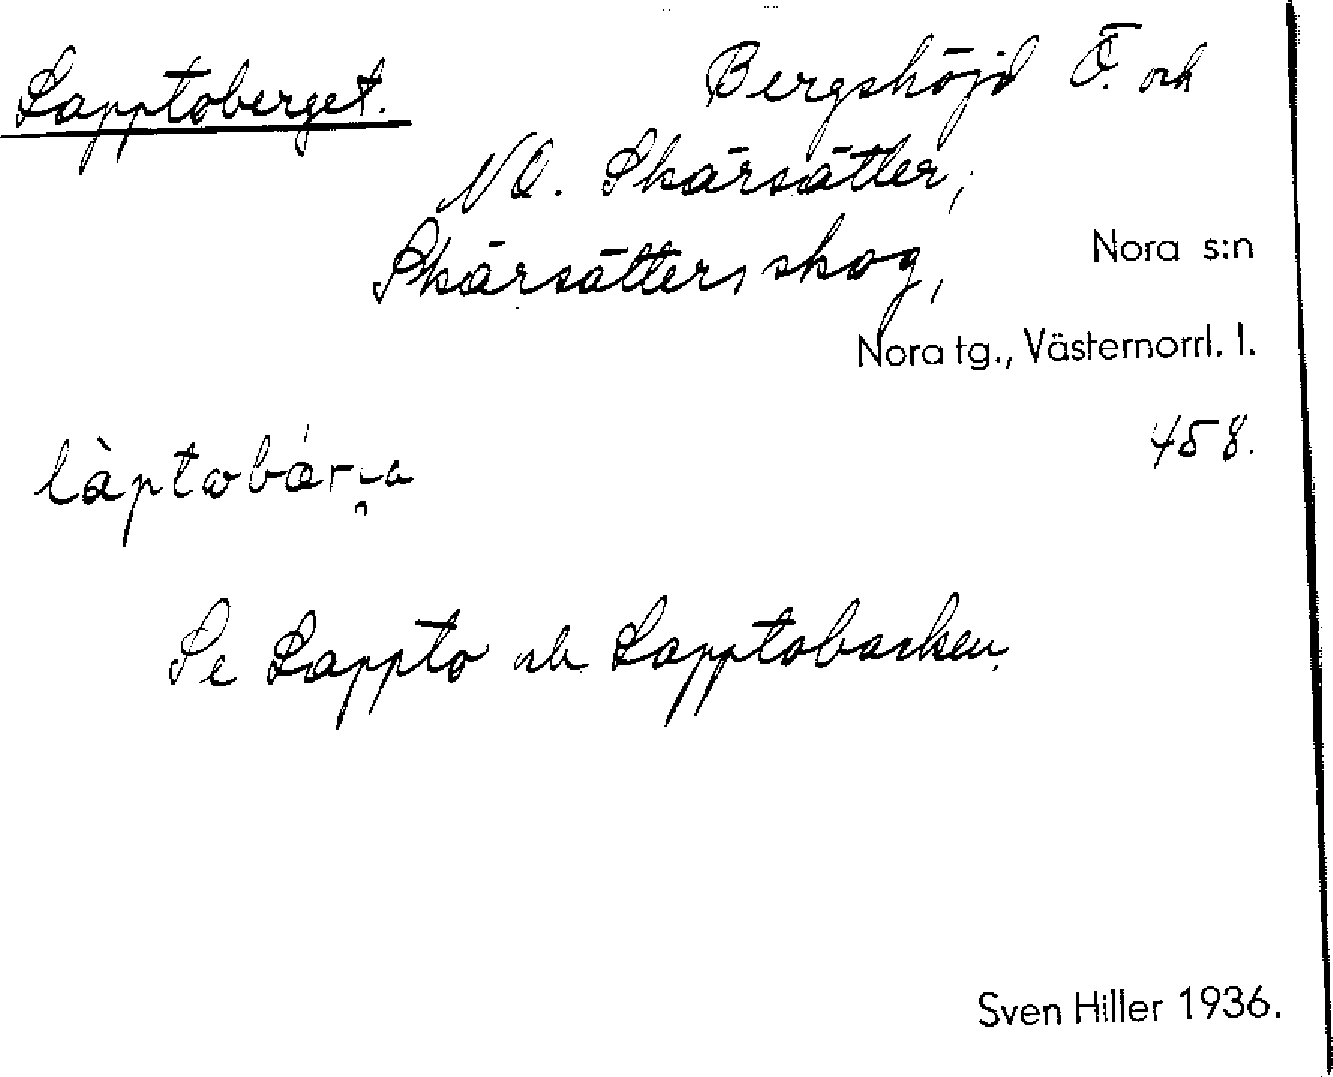 Lapptoberget. Bergshöjd Ö. och
NO. Skärsätter,
Skärsätters skog,
Nora s:n
Nora tg., Västernorrl. l.
458.
Se Lappto och Lapptobacken.
Sven Hiller 1936.